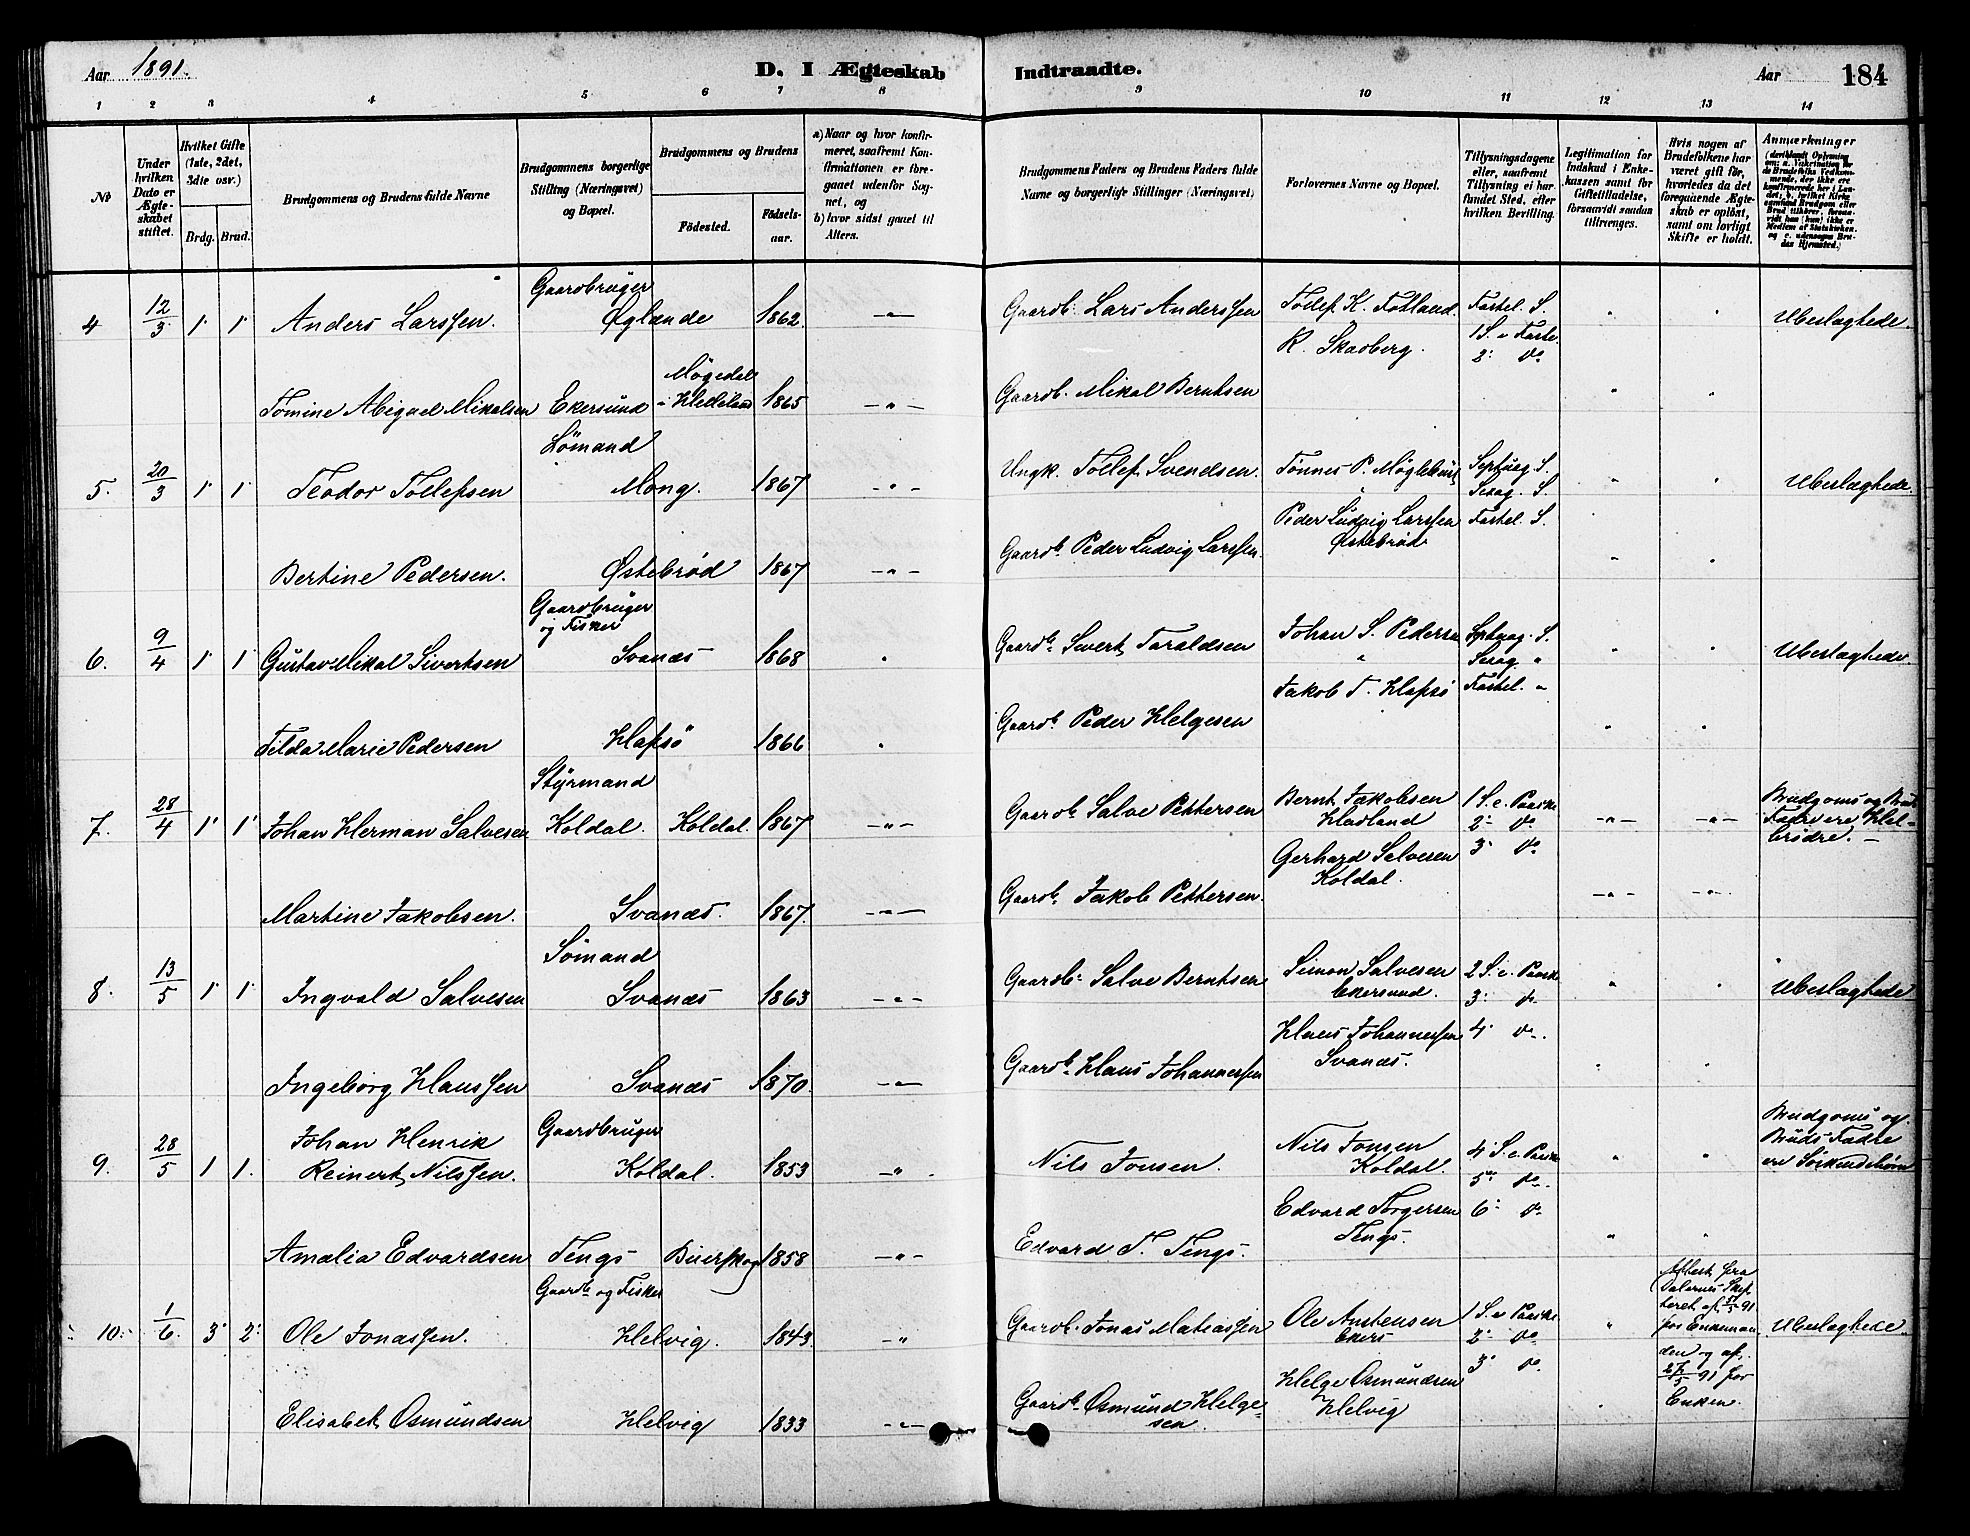 Aar 1891.
D. I Ægteskab Indtraadte.
Aar 184
1 2 3 4 5 6 7 8 9 10 11 12 13 14
No
Under hvilken Dato er Ægteskabet stiftet.
Hvilket Gifte (1ste, 2det, 3die osv.)
Brdg. Brud.
Brudgommens og Brudens fulde Navne
Brudgommens borgerlige Stilling (Næringsvei) og Bopæl.
Brudgommens og Brudens
Fødested. Fødselsaar.
a) Naar og hvor konfirmeret, saafremt Konfirmationen er foregaaet udenfor Sognet, og
b) hvor sidst gaaet til Alters.
Brudgommens Faders og Brudens Faders fulde Navne og borgerlige Stillinger (Næringsvei)
Forlovernes Navne og Bopæl.
Tillysningsdagene eller, saafremt Tillysning ei har fundet Sted, efter hvilken Bevilling.
Legitimation for Indskud i Enkekassen samt for Giftetilladelse, forsaavidt saadan tiltrænges.
Hvis nogen af Brudefolkene har været gift før, hvorledes da det foregaaende Ægteskab er opløst, samt om lovligt Skifte er holdt.
Anmærkninger
4 12/3 1 1 Anders Larssen. Gaardbruger Øglænde 1862 -"- Gaardb. Lars Anderssen Tollef K. Fotland. R. Skadberg. Fastel. S. 1 S. i Faste. 2. do Ubeslægtede.
Tomine Abigael Mikalsen Ekersund Møgedal i Helleland 1865 -"- Gaardb. Mikal Berntsen
5. 20/3 1 1 Teodor Tollefsen Sømand Mong. 1867 -"- Ungk. Tollef Svendsen. Tønnes P. Møglebust Septuag. S. Sexag. S. Fastel. S. Ubeslægtede.
Bertine Pedersen. Østebrød 1867 -"- Gaardb. Peder Ludvig Larssen. Peder Ludvig Larssen Østebrød
6. 9/4 1 1 Gustav Mikal Sivertsen Gaardbruger og Fisker Svanæs 1868 " Gaardb. Sivert Taraldsen Johan S. Pedersen Septuag. S. Sexag. " Fastel. " Ubeslægtede.
Tilda Marie Pedersen Hafsø 1866 " Gaardb. Peder Helgesen Jakob T. Hafsø
7. 28/4 1 1 Johan Herman Salvesen Styrmand Koldal. Koldal. 1867 -"- Gaardb. Salve Pettersen Bernt Jakobsen Hadland 1 S. e. Paaske 2 - do 3 do -"- -"- Brudgoms og Bruds Fædre ere Helbrødre. -
Martine Jakobsen. Svanæs. 1867. -"- Gaardb. Jakob Pettersen. Gerhard Salvesen Koldal. -"- -"-
8. 13/5 1 1 Ingvald Salvesen Sømand Svanæs 1863 -"- Gaardb. Salve Berntsen Simon Salvesen Ekersund. 2 S. e. Paaske 3. do 4 do. Ubeslægtede
Ingeborg Klaussen Svanæs 1870. -"- Gaardb. Klaus Johannessen Klaus Johannessen Svanæs.
9. 28/5 1 1. Johan Henrik Reinert Nilssen. Gaardbruger Koldal. 1853 " Nils Jonsen. Nils Jonsen Koldal. 4 S. e. Paaske 5te do. 6. do Brudgoms og Bruds Fædre ere Søskendebørn
Amalia Edvardsen Tengs Buerskog 1858 -"- Edvard T. Tengs. Edvard Torgersen Tengs.
10. 1/6. 3. 2. Ole Jonassen. Gaardb. og Fisker Helvig. 1843. -" Gaardb. Jonas Matiassen Ole Austensen Ekers 1 S. e Paaske 2. do 3. do. Attest fra Dalernes Skifteret af 91 for Enkemanden og af 27/5 91 for Enken. Ubeslægtede.
Elisabet Osmundsen Helvig 1833 -"- Gaardb. Osmund Helgesen. Helge Osmundsen Helvig